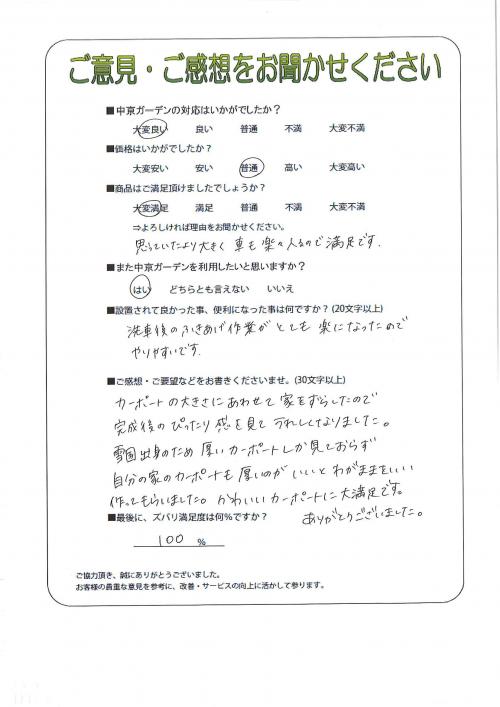 ご意見・ご感想をお聞かせください
■中京ガーデンの対応はいかがでしたか？
大変良い 良い 普通 不満 大変不満
■価格はいかがでしたか？
大変安い 安い 普通 高い 大変高い
■商品はご満足頂けましたでしょうか？
大変満足 満足 普通 不満 大変不満
⇒よろしければ理由をお聞かせください。
思っていたより大きく 車も楽々入るので 満足です.
■また中京ガーデンを利用したいと思いますか？
はい どちらとも言えない いいえ
■設置されて良かった事、便利になった事は何ですか？(20文字以上)
洗車後のふきあげ作業が とても 楽になったので
やりやすいです.
■ご感想・ご要望などをお書きくださいませ。(30文字以上)
カーポートの大きさにあわせて 家をずらしたので
完成後の ぴったり感を見て うれしくなりました。
雪国出身のため 厚い カーポートしか見ておらず
自分の家のカーポートも 厚いのが いいと わがままをいい
作ってもらいました。かわいいカーポートに大満足です。
ありがとうございました。
■最後に、ズバリ満足度は何％ですか？
100 %
ご協力頂き、誠にありがとうございました。
お客様の貴重な意見を参考に、改善・サービスの向上に活かして参ります。